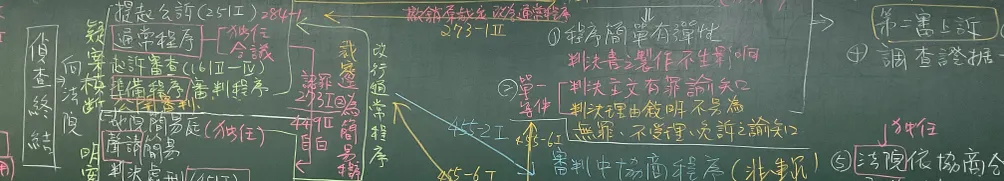 偵查終結
向法院
疑案慎斷 明案
提起公訴(251I) 284-1
通常程序 獨任 合議
起訴審查(161II-IV)
準備程序 審判程序
地院簡易庭(獨任)
聲請簡易
判決處刑(451I)
認罪 273-1 449II 自白
裁定改為簡易程序
改行通常程序
撤銷原裁定 改通常程序
273-1II
①程序簡單有彈性
判決書之製作不生影響
②單一案件
判決主文有罪諭知
判決理由敘明不另為
無罪、不受理、免訴之諭知
455-2I
455-6I
455-6I
審判中協商程序(非重罪)
第二審上訴
④調查證據
獨任
⑤法院依協商合